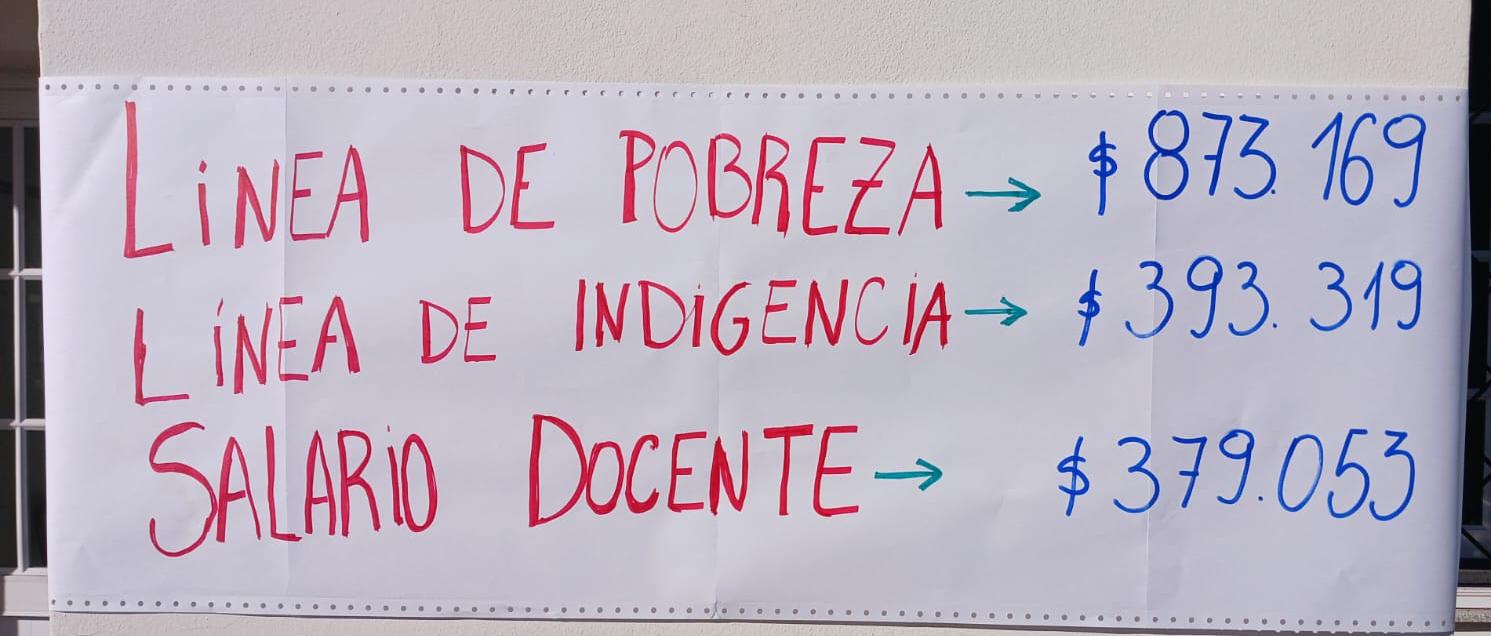 LíNEA DE POBREZA → $ 873.169
LíNEA DE INDiGENCIA → $ 393.319
SALARiO DOCENTE → $ 379.053